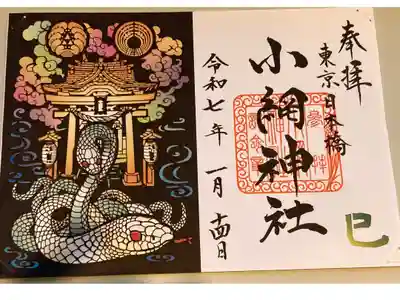 奉拝
東京日本橋
小網神社
令和七年 一月 十四日
巳